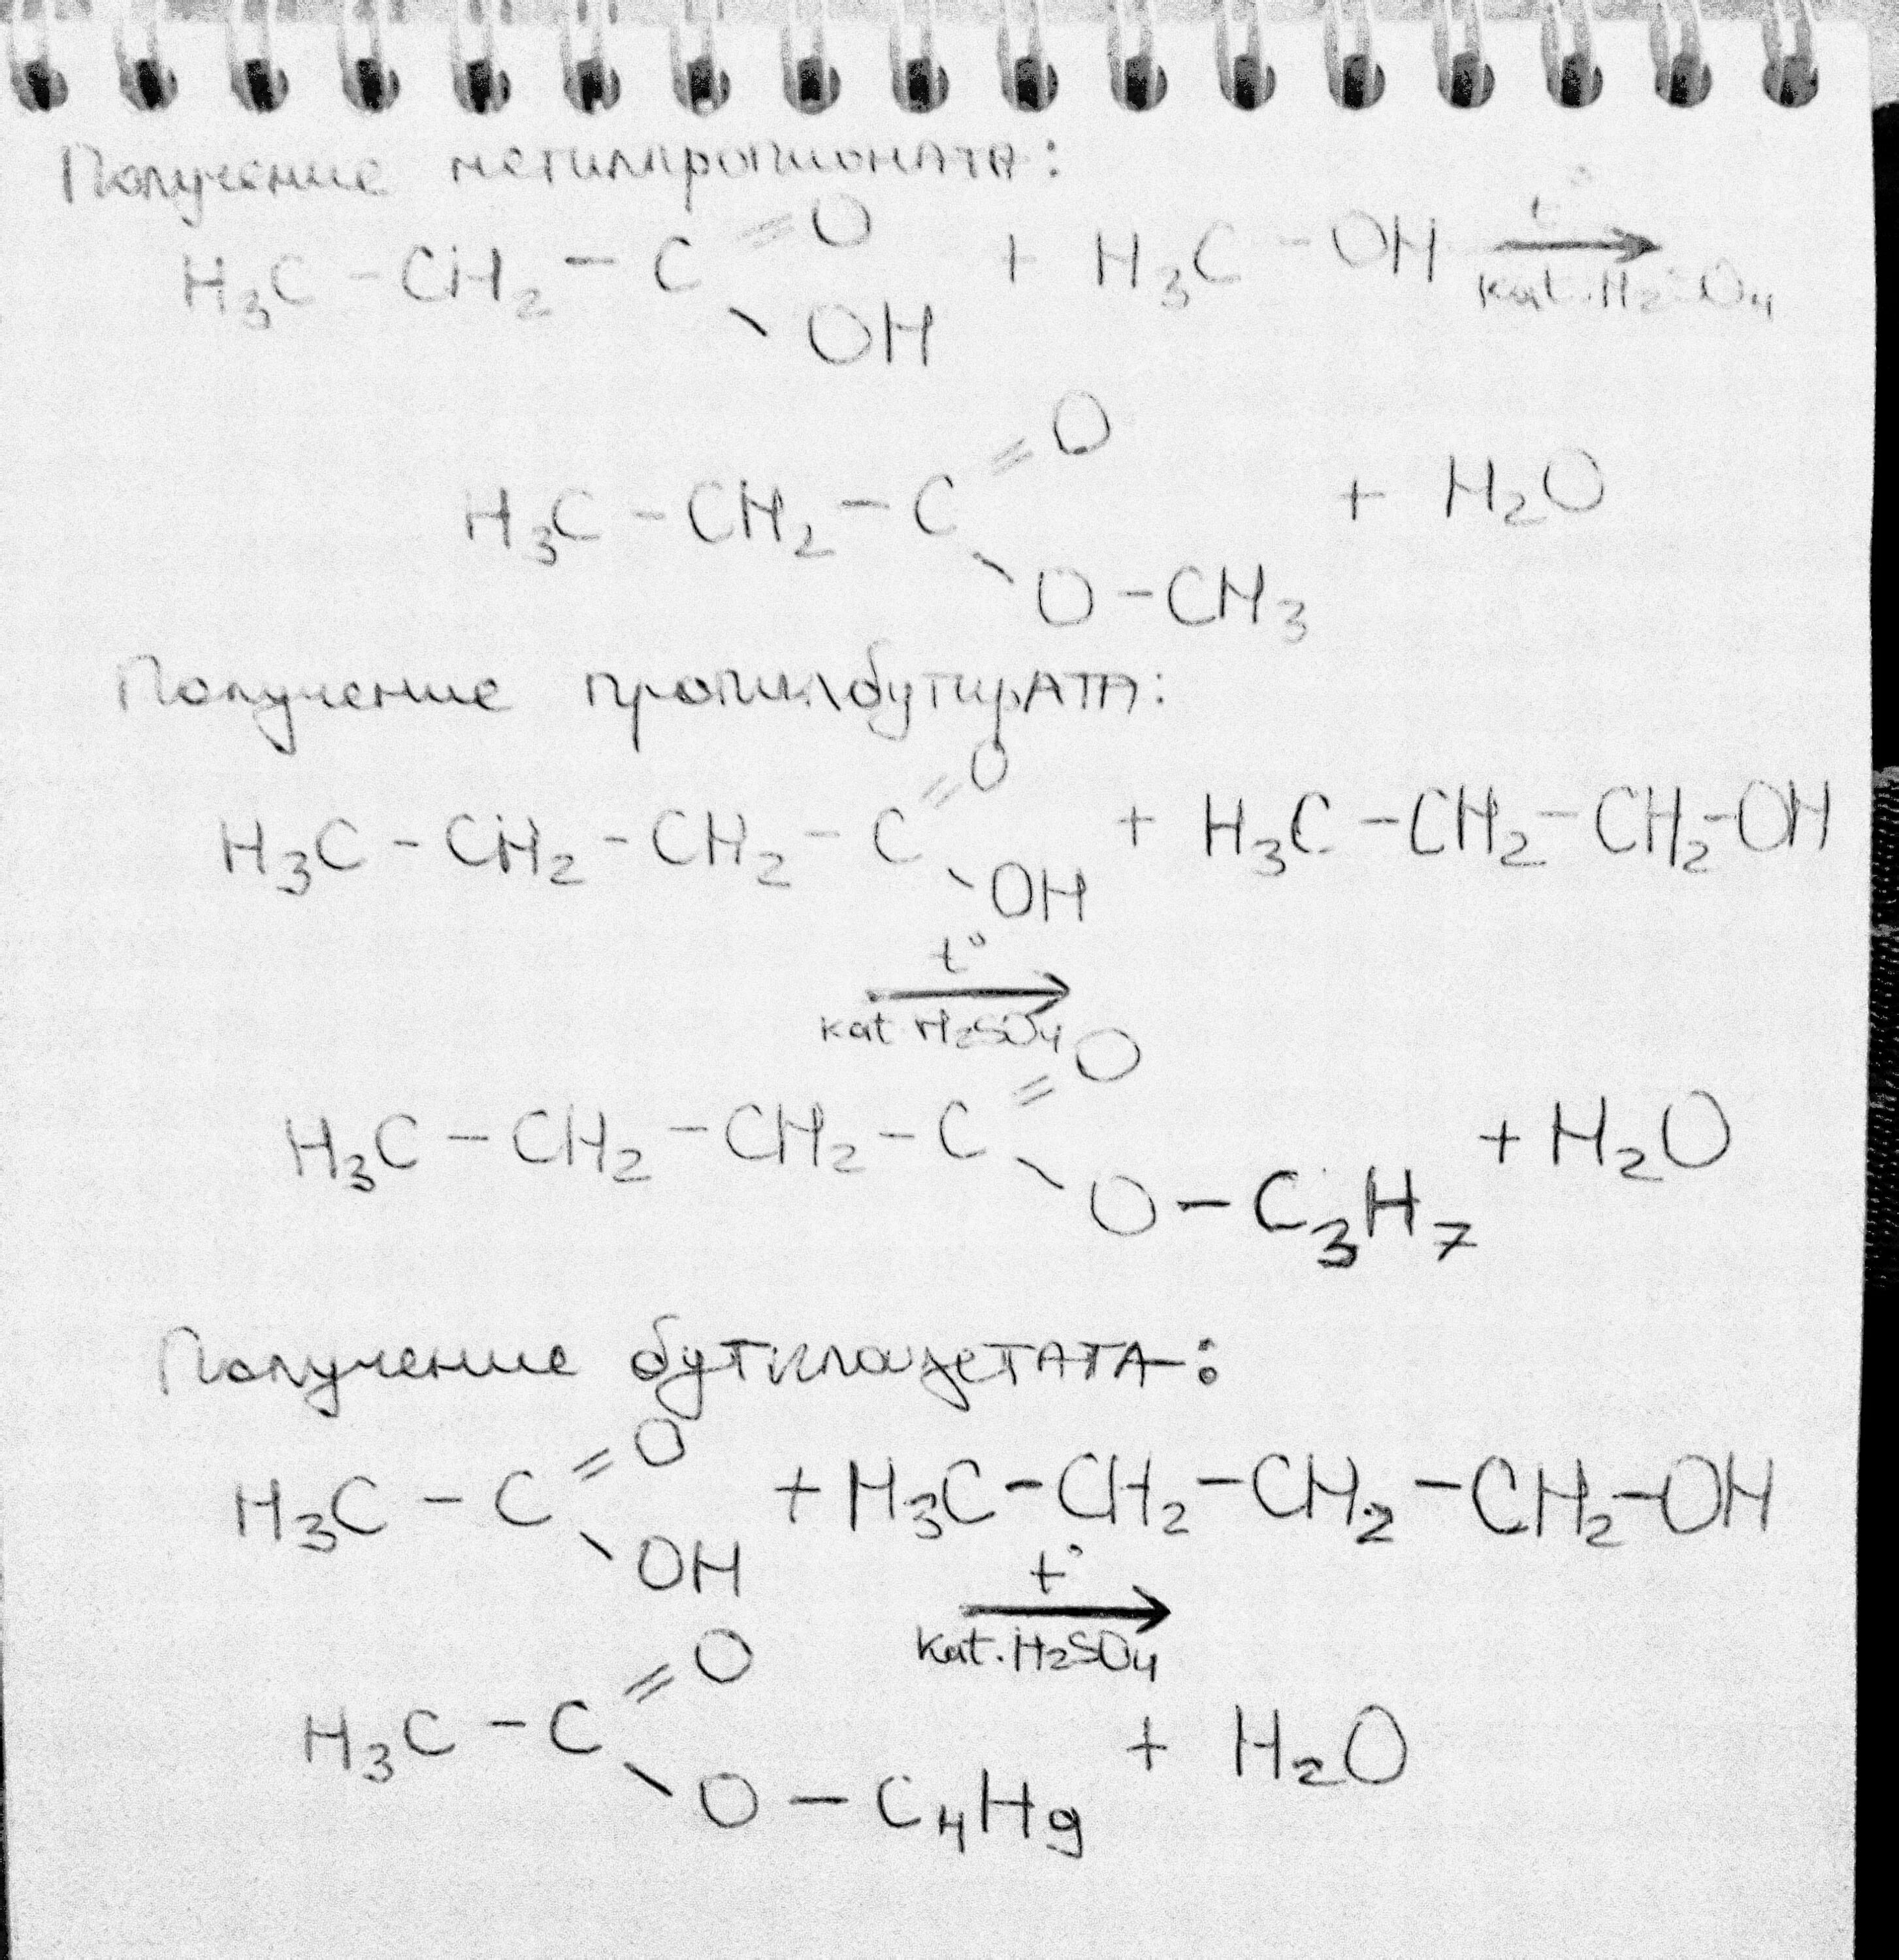 Получение метилпропионата:
H₃C - CH₂ - C =O - OH + H₃C - OH t° → kat. H₂SO₄
H₃C - CH₂ - C =O - O - CH₃ + H₂O
Получение пропилбутирата:
H₃C - CH₂ - CH₂ - C =O - OH + H₃C - CH₂ - CH₂ - OH
t° → kat. H₂SO₄
H₃C - CH₂ - CH₂ - C =O - O - C₃H₇ + H₂O
Получение бутилацетата:
H₃C - C =O - OH + H₃C - CH₂ - CH₂ - CH₂ - OH
t° → kat. H₂SO₄
H₃C - C =O - O - C₄H₉ + H₂O